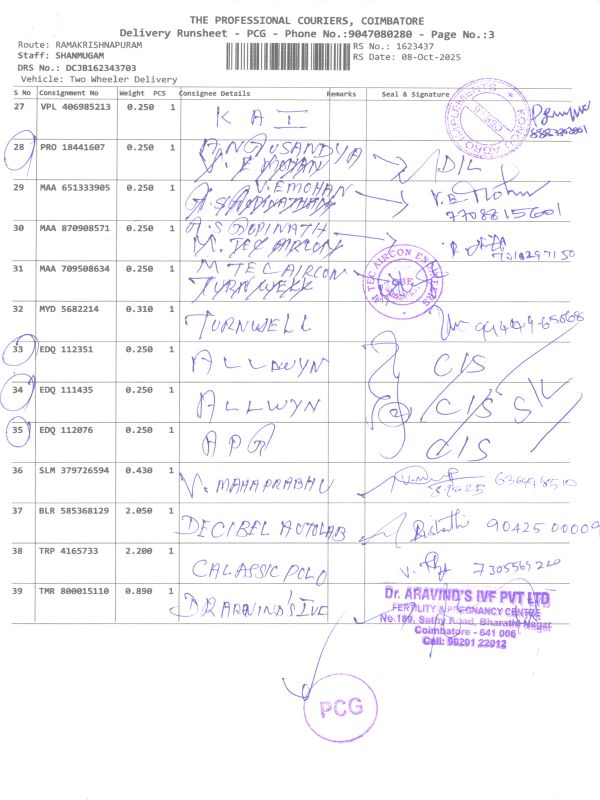 THE PROFESSIONAL COURIERS, COIMBATORE
Delivery Runsheet - PCG - Phone No.:9047080280 - Page No.:3
Route: RAMAKRISHNAPURAM
RS No.: 1623437
Staff: SHANMUGAM
RS Date: 08-Oct-2025
DRS No.: DCJB162343703
Vehicle: Two Wheeler Delivery
S No Consignment No Weight PCS Consignee Details Remarks Seal & Signature
27 VPL 406985213 0.250 1 KAI
28 PRO 18441607 0.250 1 D/L
29 MAA 651333905 0.250 1 V.E MOHAN
7708815601
30 MAA 870908571 0.250 1 A.S GOPINATH
31 MAA 709508634 0.250 1 M TEC AIRCON
M TEC AIRCON ENGINEERS
32 MYD 5682214 0.310 1 TURNWELL
33 EDQ 112351 0.250 1 ALLWYN C/S
34 EDQ 111435 0.250 1 ALLWYN C/S
35 EDQ 112076 0.250 1 APR C/S
36 SLM 379726594 0.430 1 V. MAHAPRABHU
37 BLR 585368129 2.050 1 DECIBEL AUTOLAB 90425 00009
38 TRP 4165733 2.200 1 CALASSIC POLO 7305569220
39 TMR 800015110 0.890 1 DR ARAVIND'S IVF
Dr. ARAVIND'S IVF PVT LTD
FERTILITY & PREGNANCY CENTRE
No.189, Sathy Road, Bharathi Nagar
Coimbatore - 641 006
Cell: 90201 22012
PCG